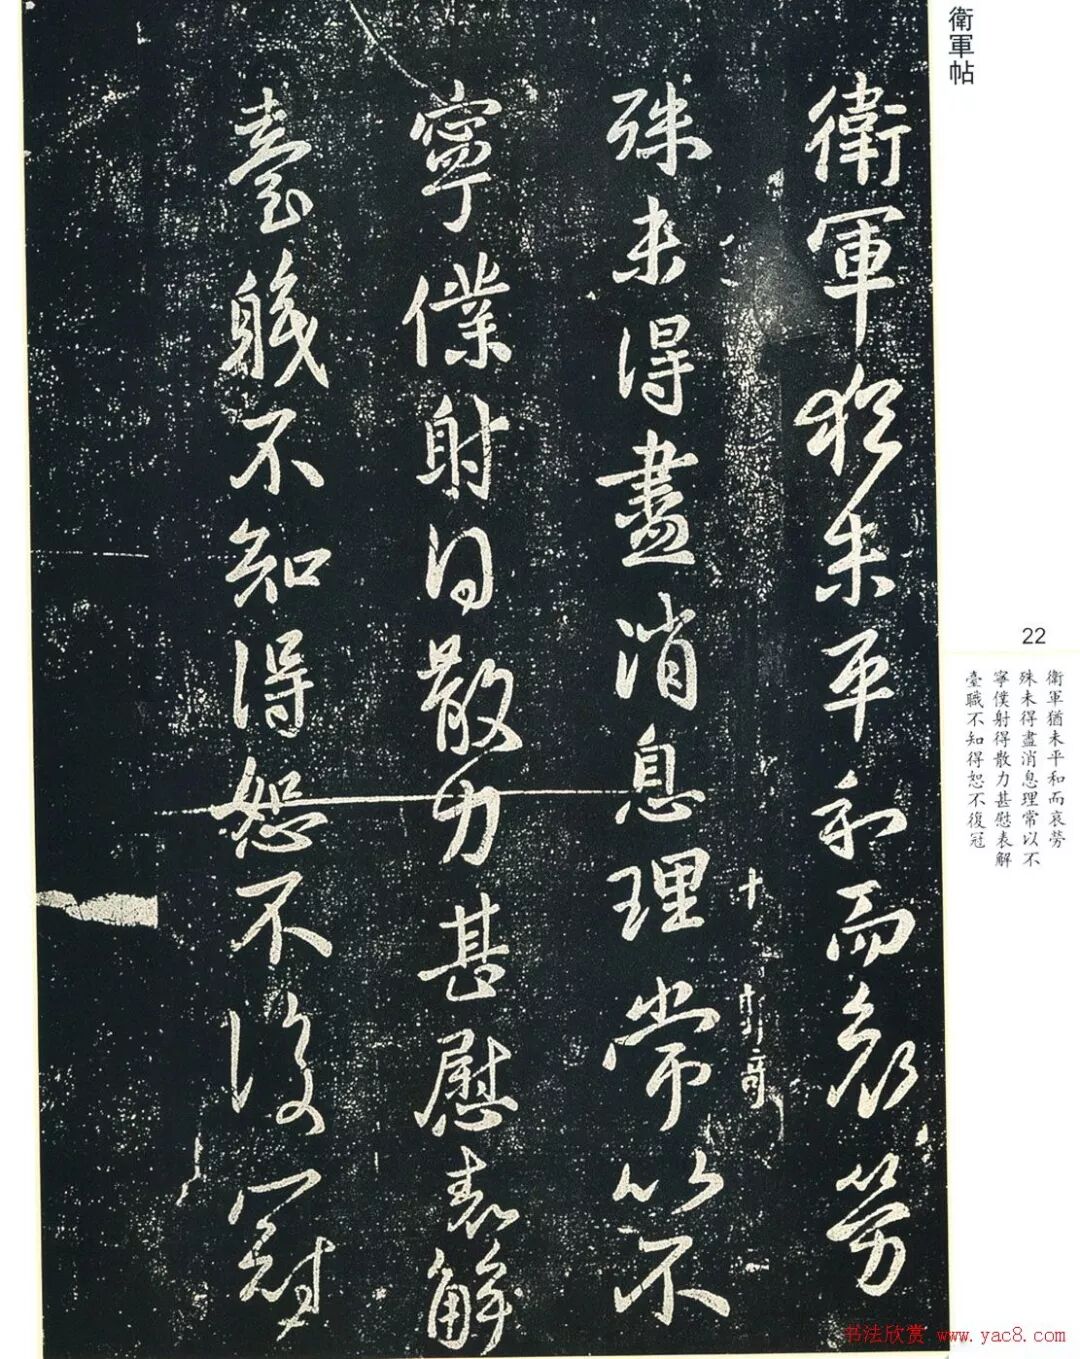 衛軍帖
衛軍猶未平和而哀勞
殊未得盡消息理常以不
寧僕射得散力甚慰表解
臺職不知得恕不復冠
22
衛軍猶未平和而哀勞
殊未得盡消息理常以不
寧僕射得散力甚慰表解
臺職不知得恕不復冠
书法欣赏 www.yac8.com